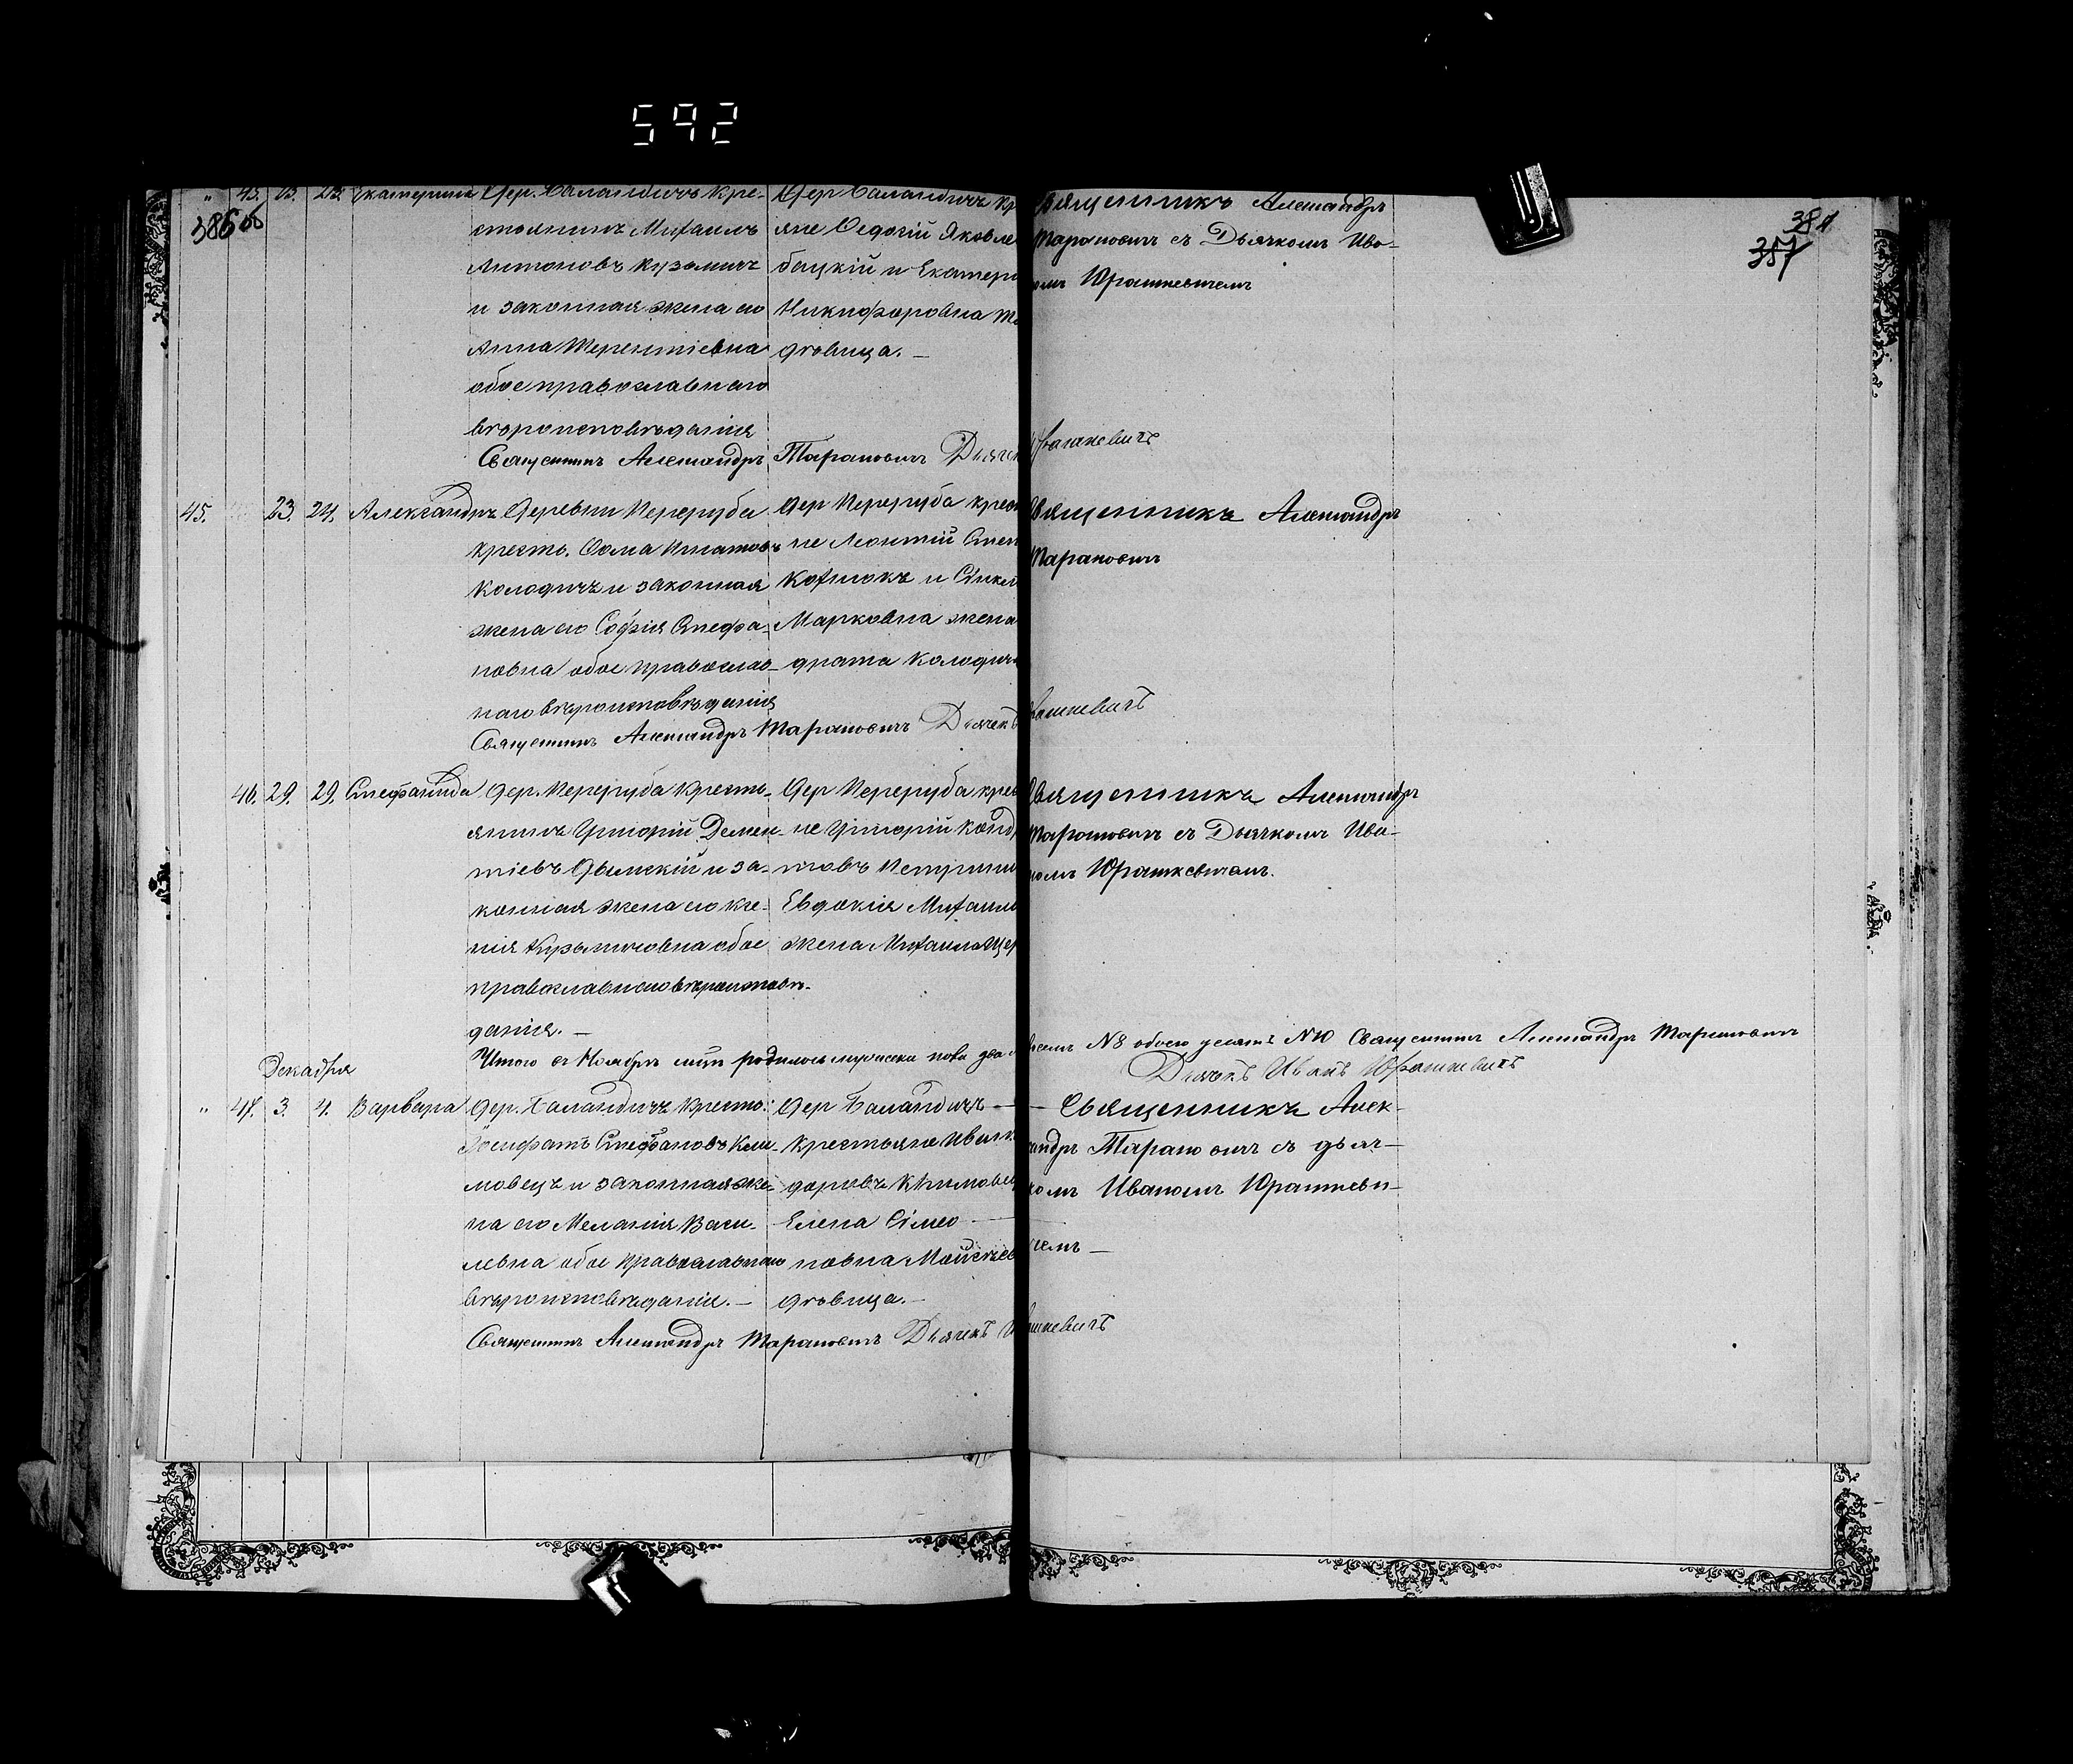 592
386 об
381
387
" 45. 23. 23. Екатерина Дер. Халандичъ кре-
стьянинъ Михаилъ
Антоновъ Кузьмичъ
и законная жена его
Анна Терентіевна
обое православнаго
вѣроисповѣданія
Дер Баландичъ кр
яне Ѳеодосій Яковле
бацкій и Екатери
Никифоровна
дѣвица. —
Священникъ Александръ
Тарановичъ съ Дьячкомъ Ива-
омъ Юрашкевичемъ
Священникъ Александръ Тарановичъ Дьячек рашкевичъ
45. 23. 24. Александръ Деревни Переруба
кресть. Ѳома Игнатовъ
Колодичъ и законная
жена его Софія Стефа-
новна обое православ-
наго вѣроисповѣданія
дер Переруба крест
не Леонтій Степ
Кохнюкъ и
Марковна жена
драта Колодич
вященникъ Александръ
Тарановичъ
Священникъ Александръ Тарановичъ Дьячекъ рашкевичъ
46. 29. 29. Стефанида дер. Переруба кресть-
янинъ Григорій Демен-
тіевъ Дымскій и за-
конная жена его Ксе-
нія Кузьминовна обое
православнаго вѣроисповѣ-
данія. —
Дер Переруба крес
не Григорій Конд
товъ Петрини
Евдокія Михаил
жена Михаила
вященникъ Александръ
Тарановичъ съ Дьячкомъ Ива-
номъ Юрашкевичемъ.
Итого въ Ноябрѣ мцѣ родилось мужеска пола два N8 обоего десять N10 Священникъ Александръ Тарановичъ
Дьячекъ Иванъ Юрашкевичъ
Декабря
" 47. 3. 4. Варвара дер. Халандичъ кресть:
Іосифатъ Стефановъ Кли-
мовецъ и законная же-
на его Меланія Васи-
левна обое православнаго
вѣроисповѣданія. —
дер Баландичъ —
крестьяне Иванъ
доровъ Климовец
Елена Сімео —
новна Мойсѣев
дѣвица. —
— Священникъ Алек-
сандръ Тарановичъ съ дьяч-
комъ Иваномъ Юрашкеви-
чемъ —
Священникъ Александръ Тарановичъ Дьячекъ рашкевичъ